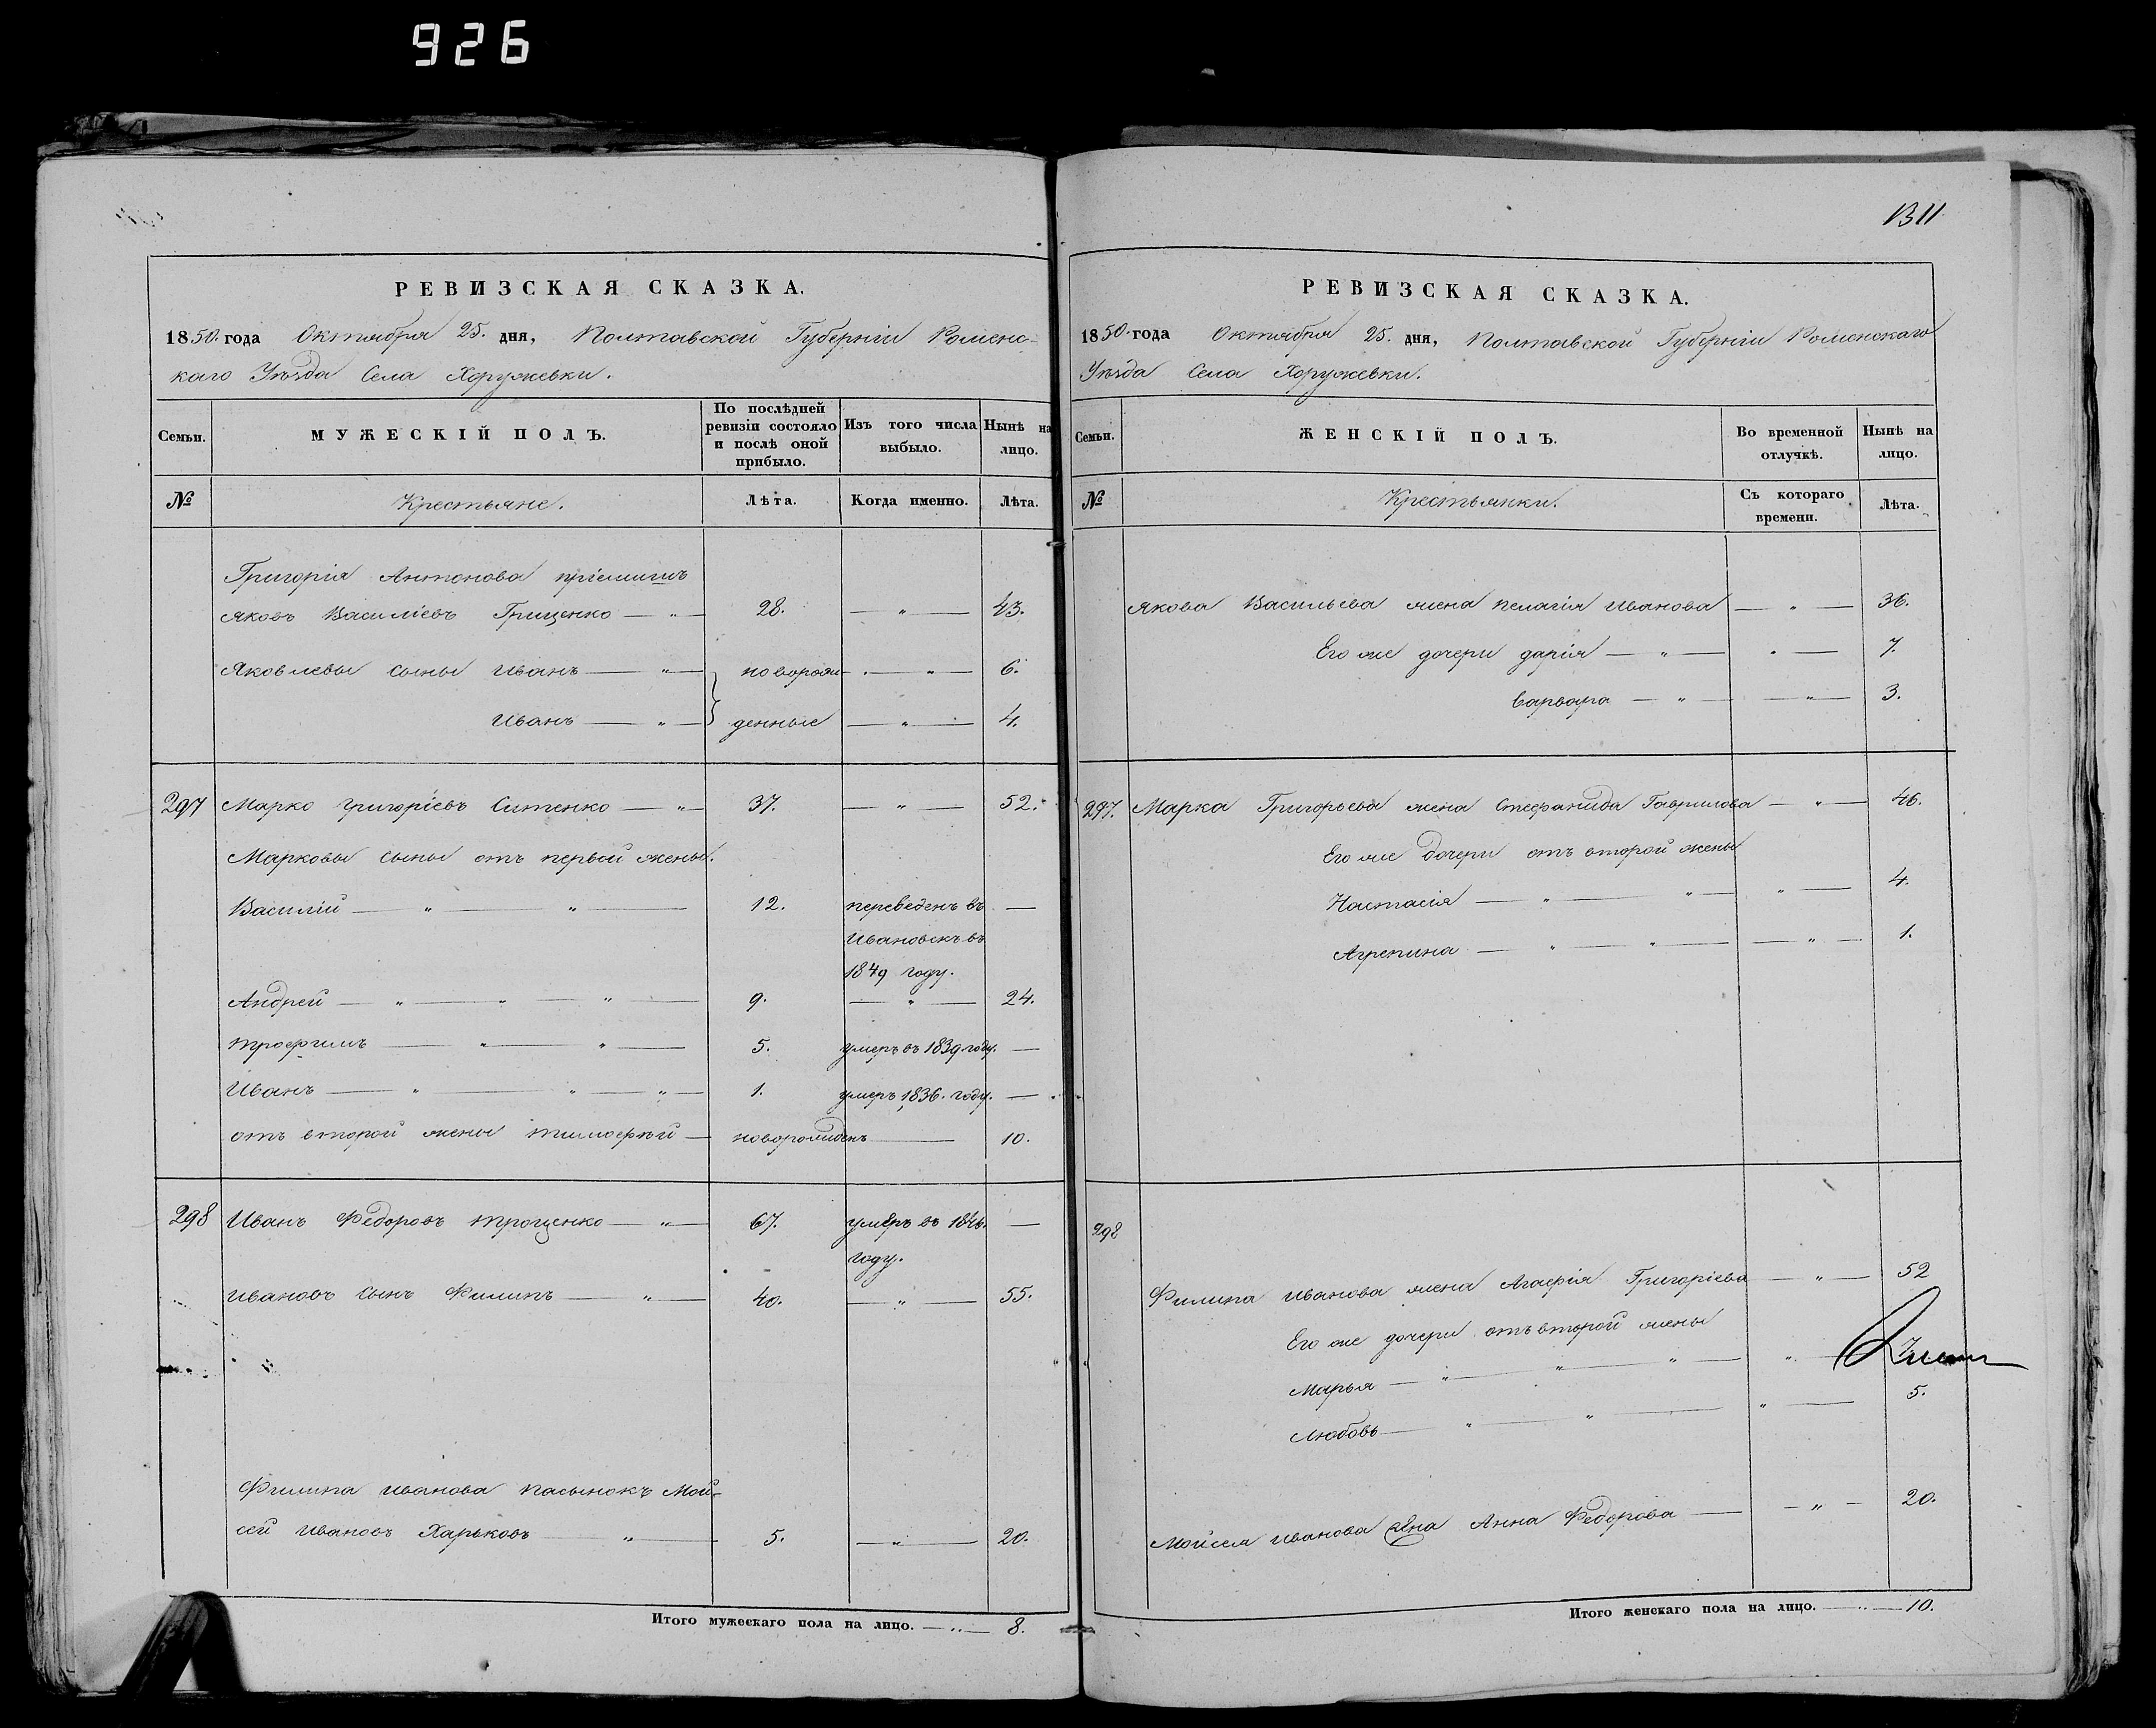 926
РЕВИЗСКАЯ СКАЗКА.
1850. года Октября 25. дня, Полтавской Губерніи Роменс-
каго Уѣзда Села Хоружевки.
Семьи.
МУЖЕСКІЙ ПОЛЪ.
По послѣдней ревизіи состояло и послѣ оной прибыло.
Изъ того числа выбыло.
Нынѣ на лицо.
№ Крестьяне. Лѣта. Когда именно. Лѣта.
Григорія Антонова пріемышъ
Яковъ Василіевъ Грищенко — „ — 28. — „ — 43.
Яковлевы сыны Иванъ — „ — новорож- — „ — 6.
Иванъ — „ — денные — „ — 4.
297 Марко Григоріевъ Ситенко — „ — 37. — „ — 52.
Марковы сыны отъ первой жены.
Василій — „ — „ — 12. переведенъ въ —
Ивановскъ въ
1849 году.
Андрей — „ — „ — „ — 9. — „ — 24.
Трофимъ — „ — „ — 5. умеръ въ 1839 году. —
Иванъ — „ — „ — „ — 1. умеръ 1836. году. —
отъ второй жены Тимофѣй — новорожденъ — 10.
298 Иванъ Федоровъ Трощенко — „ — 67. умеръ въ 1846. —
году.
Ивановъ сынъ Филипъ — „ — 40. — „ — 55.
Филипа Иванова пасынокъ Мой-
сей Ивановъ Харьковъ — „ — 5. — „ — 20.
Итого мужескаго пола на лицо. — „ — 8.
1311
РЕВИЗСКАЯ СКАЗКА.
1850. года Октября 25. дня, Полтавской Губерніи Роменскаго
Уѣзда Села Хоружевки.
Семьи.
ЖЕНСКІЙ ПОЛЪ.
Во временной отлучкѣ.
Нынѣ на лицо.
№ Крестьянки. Съ котораго времени. Лѣта.
Якова Васильева жена Пелагія Иванова — „ — 36.
Его же дочери Дарія — „ — „ — 7.
Варвара — „ — „ — 3.
297. Марка Григорьева жена Стефанида Гаврилова — „ — 46.
Его же дочери отъ второй жены
Настасія — „ — „ — „ — 4.
Агрепина — „ — „ — „ — 1.
298
Филипа Иванова жена Агафія Григоріева — „ — 52
Его же дочери отъ второй жены
Марья — „ — „ — „ — „ — 7.
Любовь — „ — „ — „ — 5.
Мойсея Иванова жена Анна Федорова — „ — 20.
Итого женскаго пола на лицо. — „ — 10.